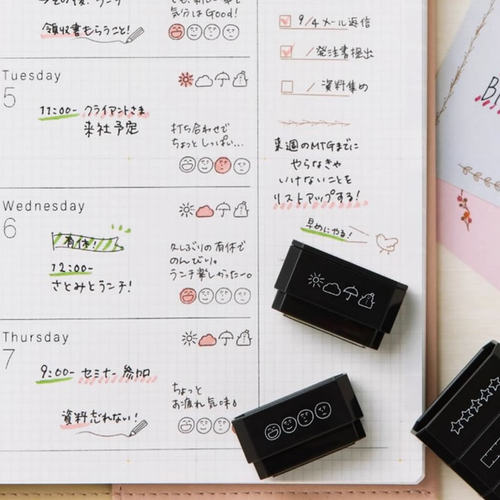 気分はGood!
領収書もらうこと!
Tuesday
5
11:00- クライアントさま
来社予定
打ち合わせで
ちょっとしっぱい…
Wednesday
6
有休!
12:00-
さとみとランチ!
久しぶりの有休で
のんびり。
ランチ楽しかったー。
Thursday
7
9:00- セミナー参加
資料忘れない!
ちょっと
お疲れ気味。
9/4 メール返信
/ 発注書提出
/ 資料集め
来週のMTGまでに
やらなきゃ
いけないことを
リストアップする!
早めにやる!